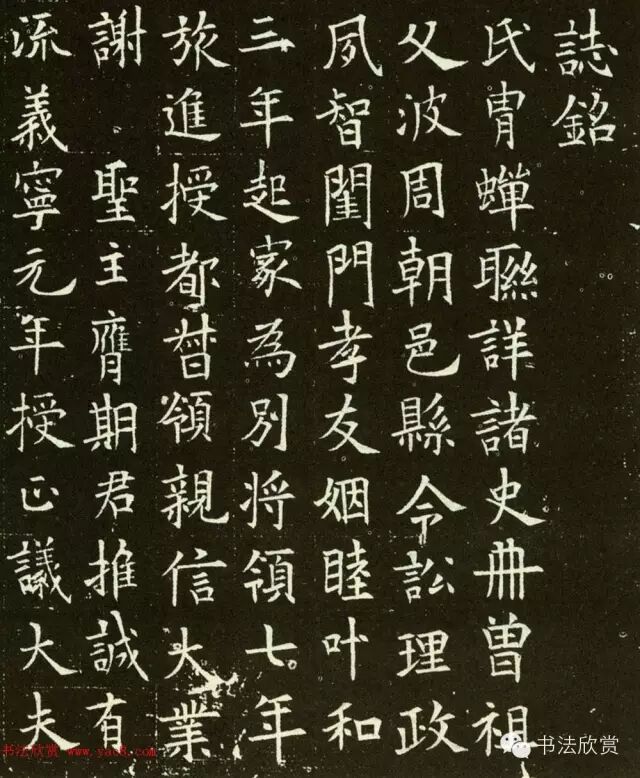 誌銘
氏胄蟬聯詳諸史冊曾祖
父波周朝邑縣令訟理政
夙智閨門孝友姻睦叶和
三年起家為別將領七年
旅進授都督領親信大業
謝 聖主膺期君推誠有
流義寧元年授正議大夫
书法欣赏 www.yac8.com
书法欣赏